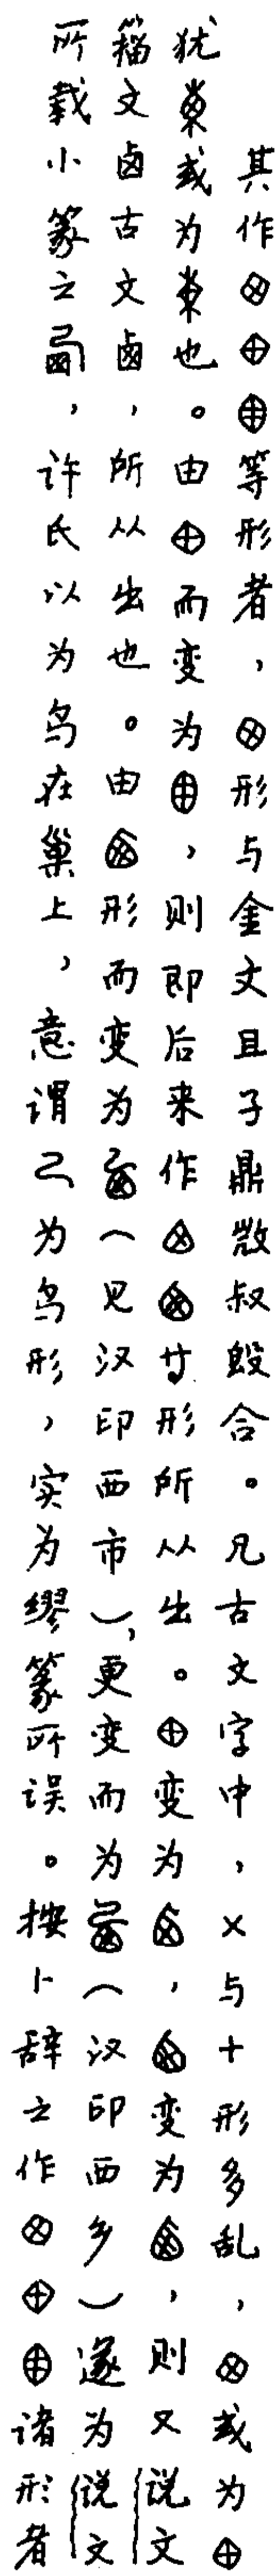 其作⊗⊕𤰔等形者，⊗形与金文且子鼎散叔𣪘合。凡古文字中，×与十形多乱，⊗或为⊕
犹東或为東也。由⊕而变为，则即后来作等形所从出。⊕变为，变为，则又说文
籀文卤古文卤，所从出也。由形而变为（见汉印西市），更变而为（汉印西乡）遂为说文
所载小篆之，许氏以为鸟在巢上，意谓为鸟形，实为缪篆所误。按卜辞之作⊗⊕诸形者